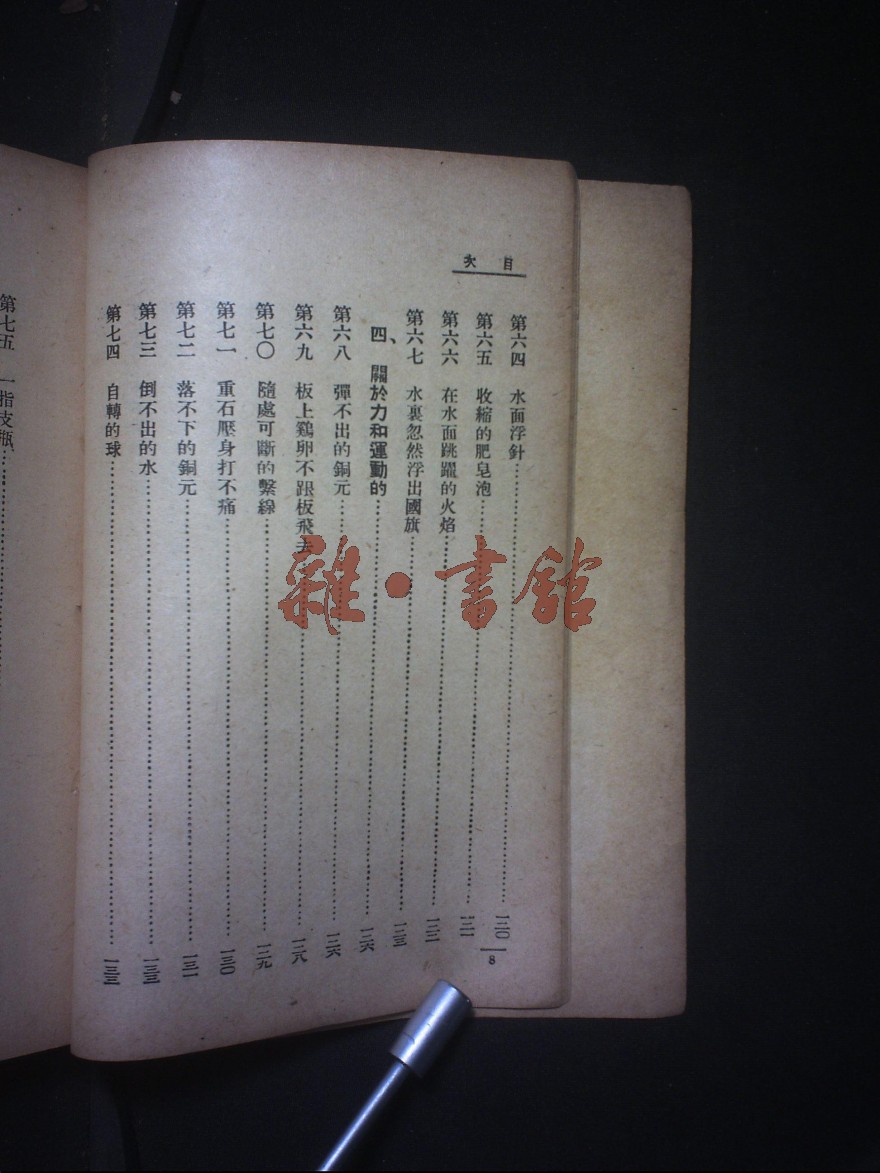 目次
第六四 水面浮針……一二〇
第六五 收縮的肥皂泡……一二一
第六六 在水面跳躍的火焰……一二二
第六七 水裏忽然浮出國旗……一二三
四、關於力和運動的……一二六
第六八 彈不出的銅元……一二六
第六九 板上鷄卵不跟板飛去……一二八
第七〇 隨處可斷的繫線……一二九
第七一 重石壓身打不痛……一三〇
第七二 落不下的銅元……一三一
第七三 倒不出的水……一三三
第七四 自轉的球……一三三
8
第七五 一指支瓶……
雜·書館